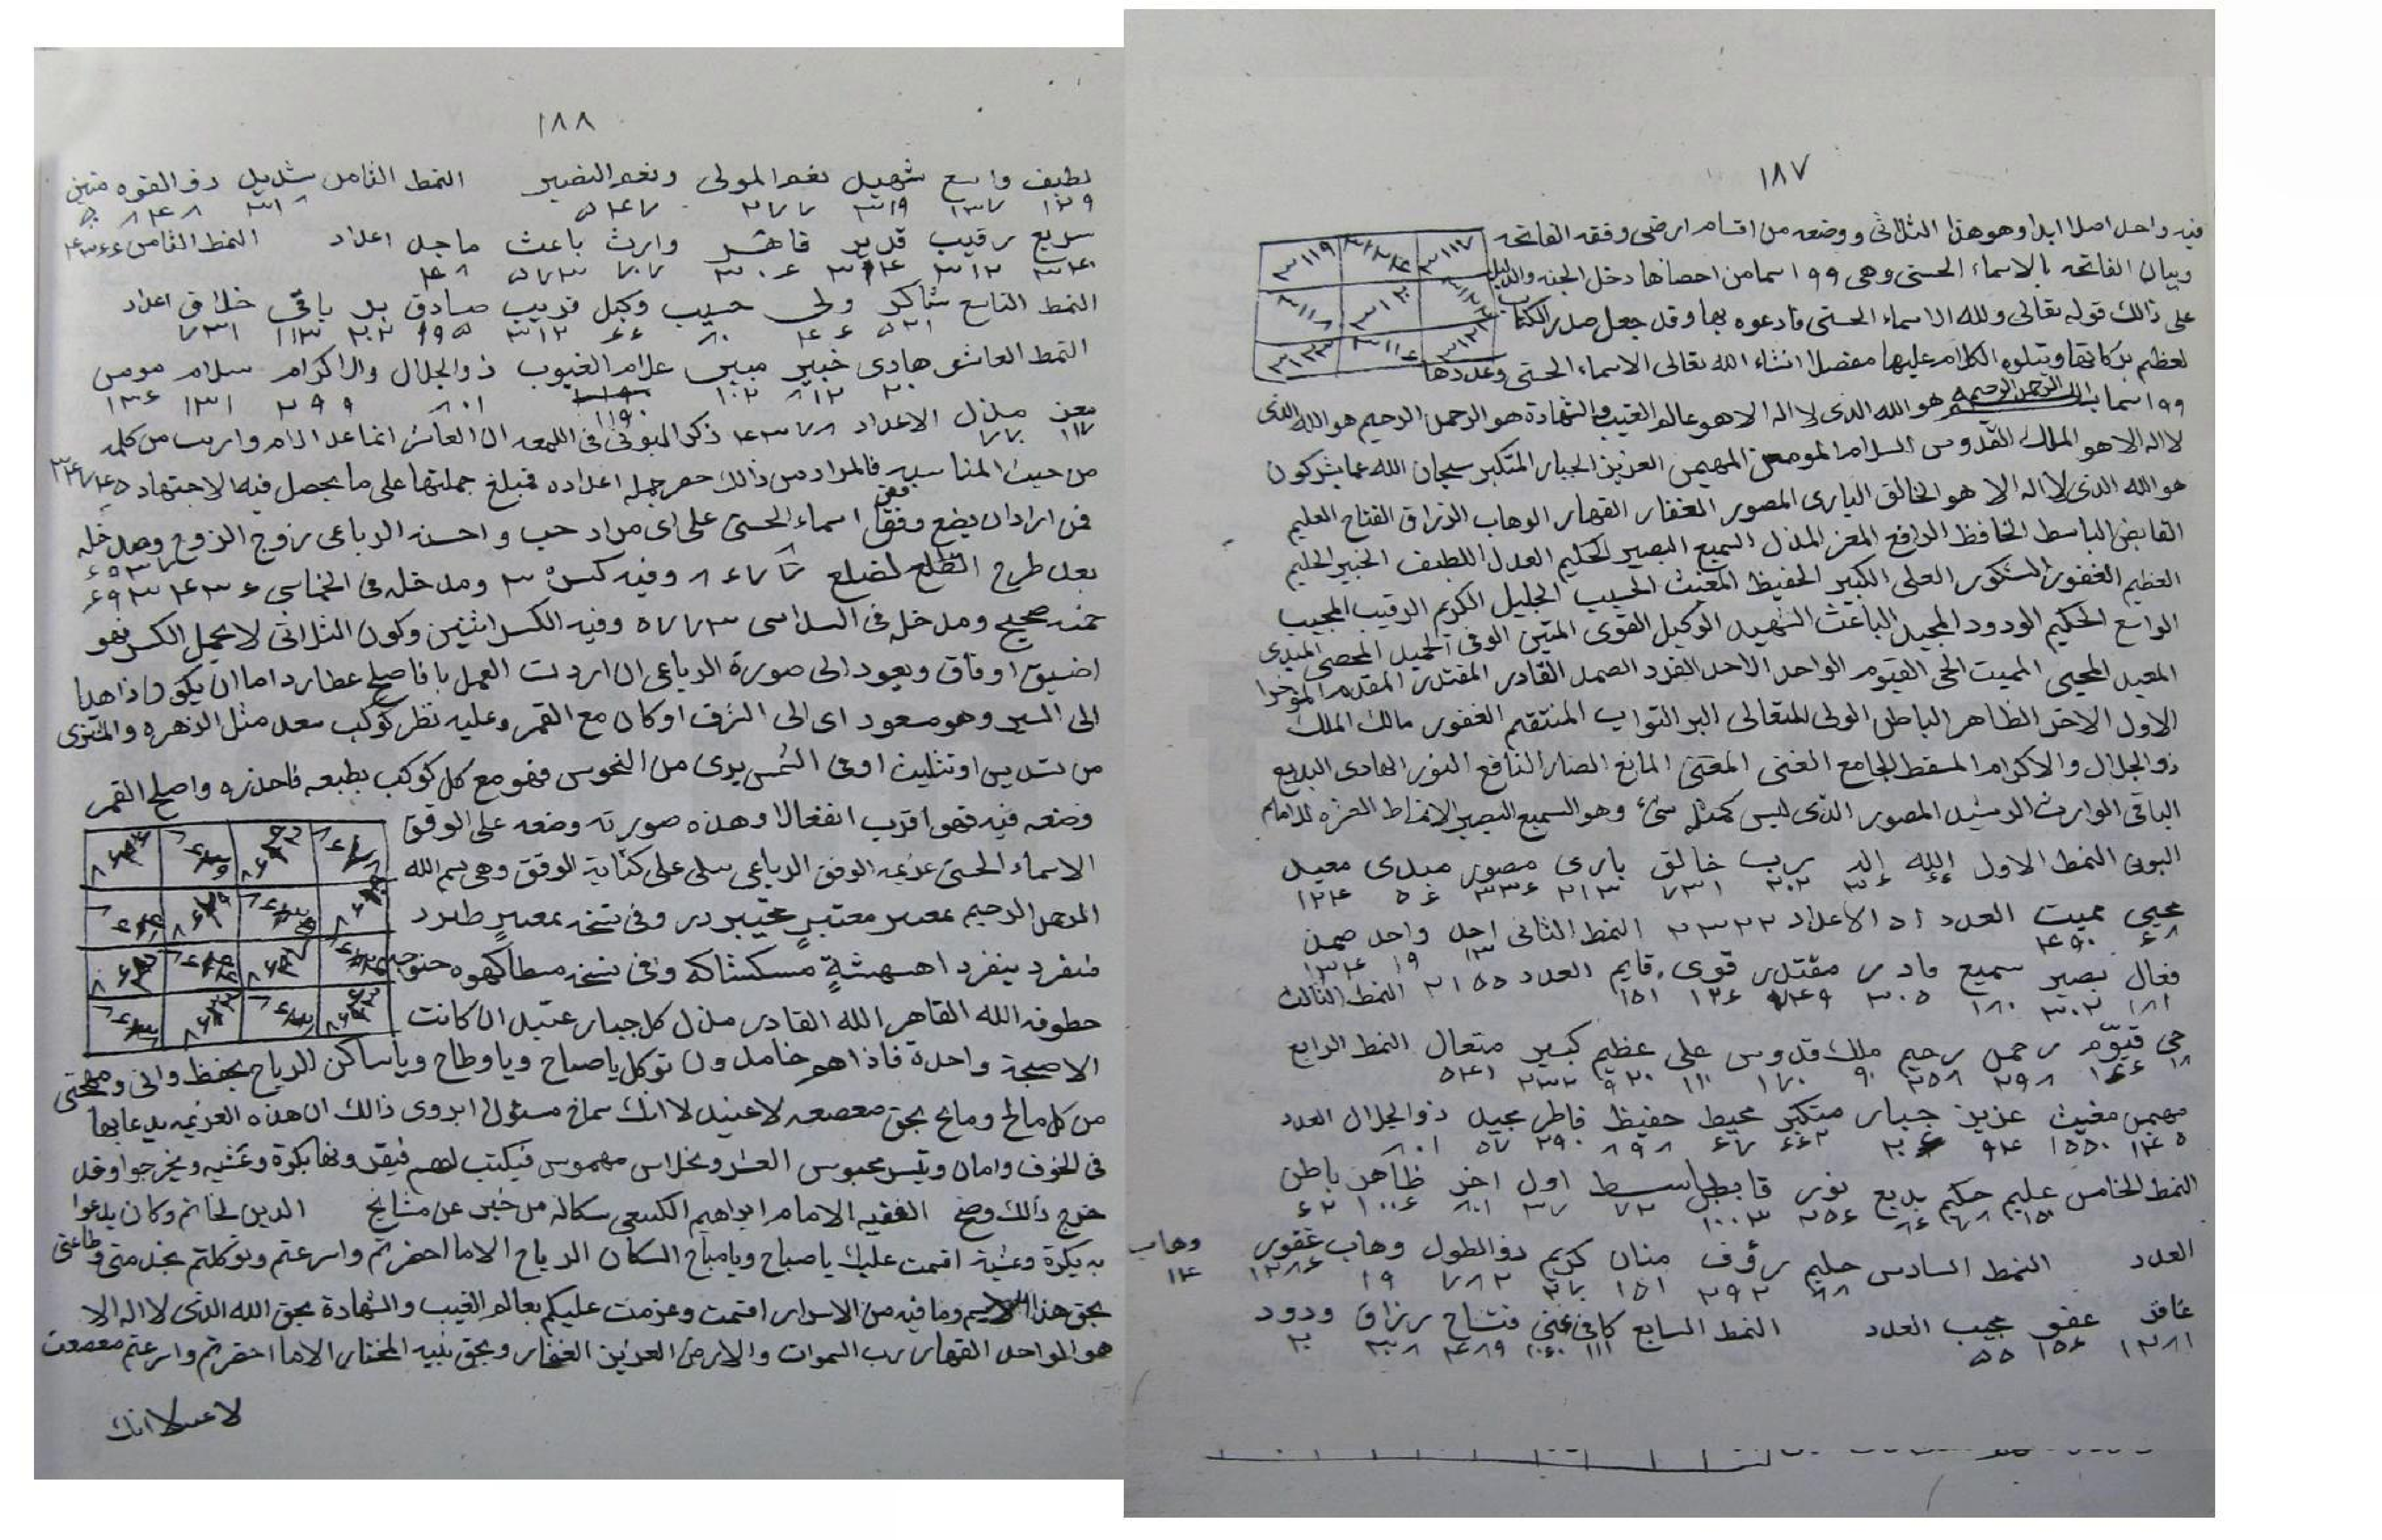 ١٨٧
فيه واحد اصلا ابدا وهو هذا الثلاثى ووضعه من اقسام ارضى وفقه الفاتحه
٣١١٧ ٣١٢٤ ٣١١٩
وبيان الفاتحه بالاسماء الحسنى وهى ٩٩ اسما من احصاها دخل الجنه والدليل
على ذالك قوله تعالى ولله الاسماء الحسنى فادعوه بها وقد جعل صدر الكتاب
لعظم بركاتها ويتلوه الكلام عليها مفصلا انشاء الله تعالى الاسماء الحسنى وعددها
٩٩ اسما بسم الله الرحمن الرحيم هو الله الذى لا اله الا هو عالم الغيب والشهادة هو الرحمن الرحيم هو الله الذى
لا اله الا هو الملك القدوس السلام المومن المهيمن العزيز الجبار المتكبر سبحان الله عما يشركون
هو الله الذى لا اله الا هو الخالق البارى المصور الغفار القهار الوهاب الرزاق الفتاح العليم
القابض الباسط الخافظ الرافع المعز المذل السميع البصير الحكيم العدل اللطيف الخبير الحليم
العظيم الغفور الشكور العلى الكبير الحفيظ المغيث الحسيب الجليل الكريم الرقيب المجيب
الواسع الحكيم الودود المجيد الباعث الشهيد الوكيل القوى المتين الوفى الحميد المحصى المبدى
المعيد المحيى المميت الحى القيوم الواحد الاحد الفرد الصمد القادر المقتدر المقدم المؤخر
الاول الاخر الظاهر الباطن الولى المتعالى البر التواب المنتقم الغفور مالك الملك
ذو الجلال والاكرام المسقط الجامع الغنى المغنى المانع الضار النافع النور الهادى البديع
الباقى الوارث الرشيد المصور الذى ليس كمثله شئ وهو السميع البصير الانماط العشره للامام
البونى النمط الاول الله إله رب خالق بارى مصور مبدى معيد
٦٦ ٣٦ ٢٠٢ ٧٣١ ٢١٣ ٣٣٦ ٥٦ ١٢٤
محيى مميت العدد الاعداد ٢٣٢٢ النمط الثانى احد واحد صمد
٦٨ ٤٩٠ ١٣ ١٩ ١٣٤
فعال بصير سميع قادر مقتدر قوى قايم العدد ٢١٥٥ النمط الثالث
١٨١ ٣٠٢ ١٨٠ ٣٠٥ ٧٤٩ ١٢٦ ١٥١
حى قيّوم رحمن رحيم ملك قدوس على عظيم كبير متعال النمط الرابع
١٨ ١٦٦ ٢٩٨ ٢٥٨ ٩٠ ١٧٠ ١١٠ ٩٢٠ ٢٣٢ ٥٤١
مهيمن مغيث عزيز جبار متكبر محيط حفيظ فاطر مجيد ذو الجلال العدد
١٤٥ ١٥٥٠ ٩٤ ٢٠٦ ٦٦٢ ٦٧ ٨٩٨ ٢٩٠ ٥٧ ٨٠١
النمط الخامس عليم حكيم بديع نور قابض باسط اول اخر ظاهر باطن
١٥٠ ٧٨ ٨٦ ٢٥٦ ١٠٠٣ ٧٢ ٣٧ ٨٠١ ١٠٠٦ ٦٢
العدد النمط السادس حليم رؤف منان كريم ذو الطول وهاب غفور وهاب
٨٨ ٢٩٢ ١٥١ ٢٧٠ ٧٨٢ ١٩ ١٢٨٦ ١٤
غافر عفو مجيب العدد النمط السابع كافى غنى فتاح رزاق ودود
١٢٨١ ١٥٦ ٥٥ ١١١ ١٠٦٠ ٤٨٩ ٣٠٨ ٢٠
١٨٨
لطيف واسع شهيد نعم المولى ونعم النصير النمط الثامن شديد ذو القوه متين
١٢٩ ١٣٧ ٣١٩ ٢٧٧ ٥٤٧ ٣١٨ ٨٤٨ ٥٠٠
سريع رقيب قدير قاهر وارث باعث ماجد اعداد النمط الثامن ٤٣٦٦
٣٤٠ ٣١٢ ٣١٤ ٣٠٦ ٧٠٧ ٥٧٣ ٤٨
النمط التاسع شاكر ولى حسيب وكيل قريب صادق بر باقى خلاق اعداد
٥٢١ ٤٦ ٨٠ ٦٦ ٣١٢ ١٩٥ ٢٠٢ ١١٣ ٧٣١
النمط العاشر هادى خبير مبين علام الغيوب ذو الجلال والاكرام سلام مومن
٢٠ ٨١٢ ١٠٢ ١١٩٠ ٨٠١ ٢٩٩ ١٣١ ١٣٦
معز مذل الاعداد ٤٣٧٨ ذكر البونى فى اللمعه ان العاشر انما عد الام وارب من كلمه
١١٧ ٧٧٠
من حيث المناسبه فالمراد من ذالك حصر جمله اعداده فبلغ جملتها على ما يحصل فيه الاجتهاد
فمن اراد ان يضع وفق اسماء الحسنى على اى مراد حب واحسنه الرباعى زوج الزوج ومدخله
بعد طرح الضلع لضلع وفيه كسر ٣ ومدخله فى الخماسى
خمسه صحيح ومدخله فى السداسى ٥٧٧٣ وفيه الكسر اثنين وكون الثلاثى لا يحمل الكسر فهو
اضيق اوفاق ويعود الى صورة الرباعى ان اردت العمل بافاصلح عطارد اما ان يكون ذاهبا
الى السير وهو مسعود اى الى الشرف او كان مع القمر وعليه نظر كوكب سعد مثل الزهره والمشترى
من تسديس او تثليث او فى الشمس برى من النحوس فهو مع كل كوكب بطبعه فاحذره واصلح القمر
وضعه فيه فهو اقرب انفعالا وهذه صورته وضعه على الوفق
الاسماء الحسنى عزيمه الوفق الرباعى تتلى على كتابة الوفق وهى بسم الله
الرحمن الرحيم بمعبر معتبرٍ در وفى نسخه بمعبرٍ طبرد
منفرد ينفرد اهسهشةٍ مسكشاكه وفى نسخه
حطوفه الله القاهر الله القادر مذل كل جبار عتيد ان كانت
الا صيحة واحدة فاذا هم خامدون توكل يا صباح ويا وطاح ويا ساكن الرياح بحفظ وانى ومهجتى
من كل مالح ومايح بحق معصعه لاعنيد لا انك سماخ مسئول ابروى ذالك ان هذه العزيمه يدعا بها
فى الخوف وامان وتيسر محبوس العسر وبخلاس مهموس فيكتب لهم فيقرونها بكرة وعشيه ويخرجوا وقد
خرج ذالك وصح الفقيه الامام ابراهيم الكسعى سكاله من خبر عن مشايخ الدين لخاتم وكان يدعوا
به بكرة وعشية اقسمت عليك يا صباح ويا مباح السكان الرياح الا ما احضرتم واسرعتم وتوكلتم بخدمتى وطاعتى
بحق هذا الاسم وما فيه من الاسرار اقسمت وعزمت عليكم بعالم الغيب والشهادة بحق الله الذى لا اله الا
هو الواحد القهار رب السموات والارض العزيز الغفار وبحق نبيه المختار الا ما احضرتم واسرعتم معصعت
لا انك